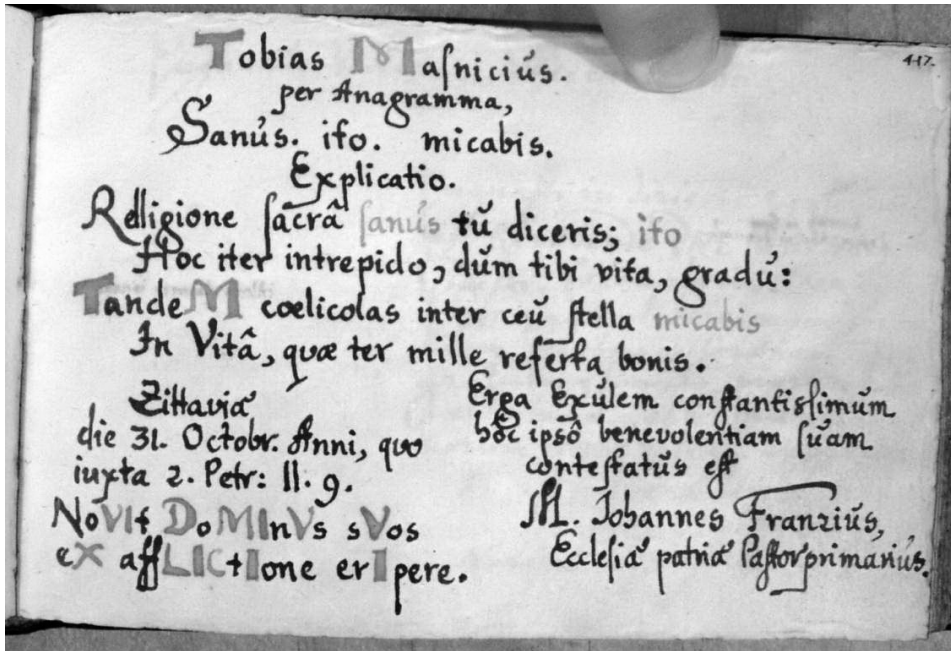 417.
Tobias Maſniciús.
per Anagramma,
Sanús. ito. micabis.
Explicatio.
Relligione ſacrâ ſanús tú diceris; ito
Hoc iter intrepido, dum tibi vita, gradú:
TandeM coelicolas inter ceú ſtella micabis
In Vitâ, quæ ter mille referta bonis.
Zittaviæ
die 31. Octobr. Anni, quo
iuxta 2. Petr: II. 9.
NoVIt DoMInVs sVos
eX affLICtIone erIpere.
Erga Exúlem conſtantiſſimum
hôc ipsô benevolentiam ſúam
conteſtatús eſt
M. Johannes Franzius,
Eccleſiæ patriæ Paſtor primariús.